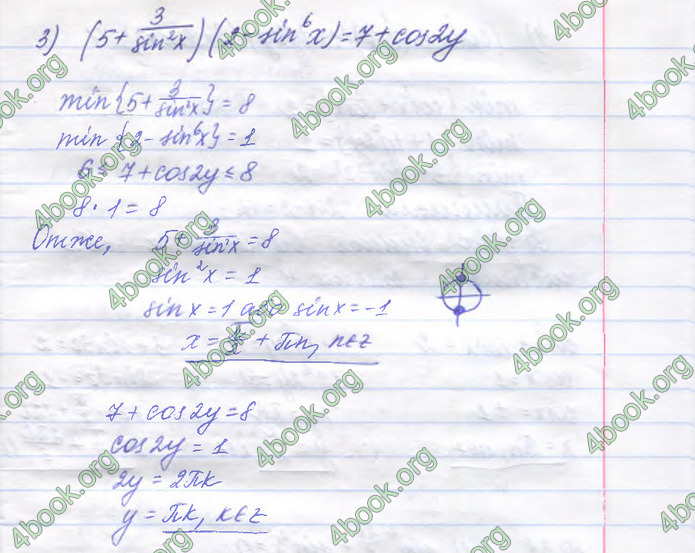 3) (5 + 3/sin²x)(2 - sin⁶x) = 7 + cos2y
min{5 + 3/sin²x} = 8
min{2 - sin⁶x} = 1
6 ≤ 7 + cos2y ≤ 8
8 · 1 = 8
Отже, 5 + 3/sin²x = 8
sin²x = 1
sin x = 1 або sin x = -1
x = π/2 + πn, n∈z
7 + cos2y = 8
cos2y = 1
2y = 2πk
y = πk, k∈z
4book.org